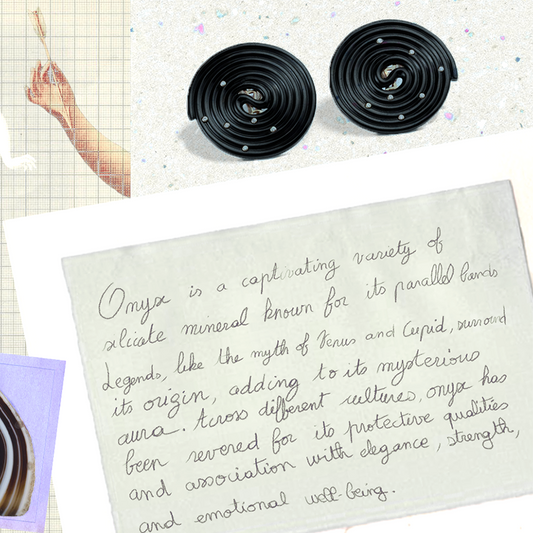 Onyx is a captivating variety of
silicate mineral known for its parallel bands
Legends, like the myth of Venus and Cupid, surround
its origin, adding to its mysterious
aura. Across different cultures, onyx has
been revered for its protective qualities
and association with elegance, strength,
and emotional well-being.